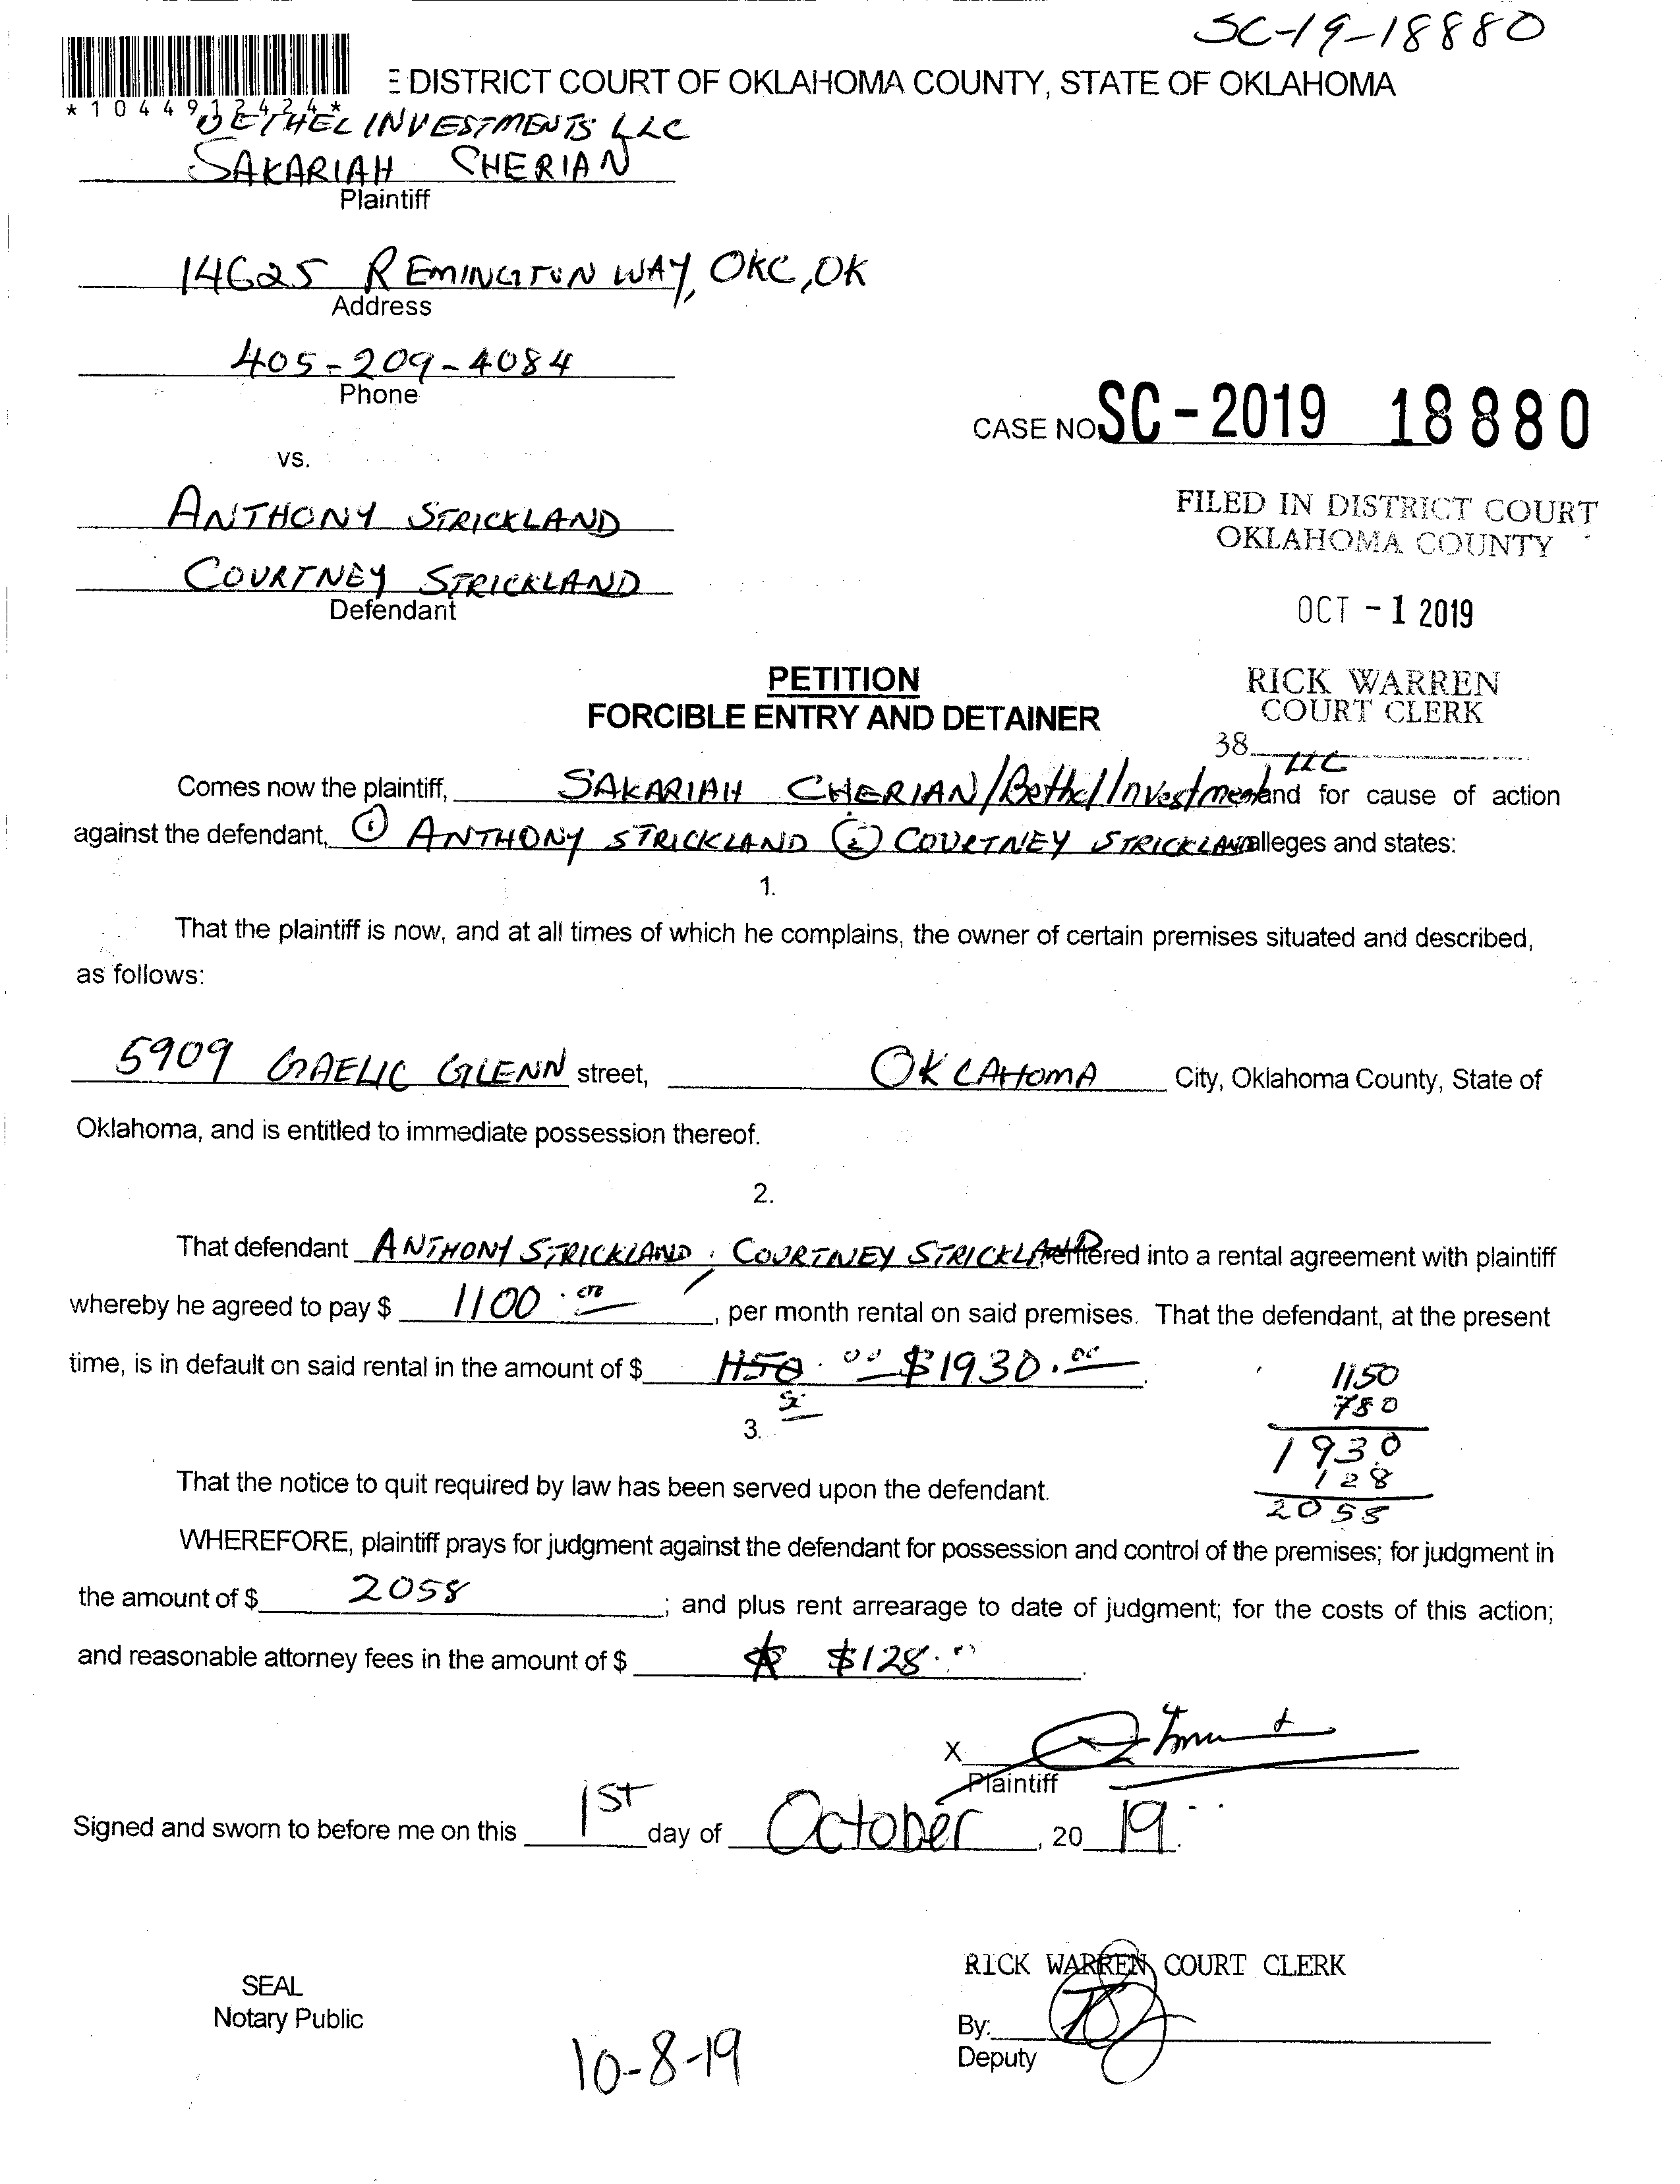 SC-19-18880
*1044912424*
E DISTRICT COURT OF OKLAHOMA COUNTY, STATE OF OKLAHOMA
BETHEL INVESTMENTS LLC
SAKARIAH CHERIAN
Plaintiff
14625 REMINGTON WAY, OKC, OK
Address
405-209-4084
Phone
CASE NO. SC-2019 18880
VS.
ANTHONY STRICKLAND
COURTNEY STRICKLAND
Defendant
FILED IN DISTRICT COURT
OKLAHOMA COUNTY
OCT - 1 2019
RICK WARREN
COURT CLERK
38
PETITION
FORCIBLE ENTRY AND DETAINER
Comes now the plaintiff, SAKARIAH CHERIAN/Bethel Investment LLC and for cause of action
against the defendant, ① ANTHONY STRICKLAND ② COURTNEY STRICKLAND alleges and states:
1.
That the plaintiff is now, and at all times of which he complains, the owner of certain premises situated and described,
as follows:
5909 GAELIC GLENN street, OKLAHOMA City, Oklahoma County, State of
Oklahoma, and is entitled to immediate possession thereof.
2.
That defendant ANTHONY STRICKLAND, COURTNEY STRICKLAND entered into a rental agreement with plaintiff
whereby he agreed to pay $ 1100.00, per month rental on said premises. That the defendant, at the present
time, is in default on said rental in the amount of $ 1150.00 $1930.00
1150
780
1930
128
2058
3.
That the notice to quit required by law has been served upon the defendant.
WHEREFORE, plaintiff prays for judgment against the defendant for possession and control of the premises; for judgment in
the amount of $ 2058; and plus rent arrearage to date of judgment; for the costs of this action;
and reasonable attorney fees in the amount of $ $128.00.
X
Plaintiff
Signed and sworn to before me on this 1st day of October, 2019.
SEAL
Notary Public
10-8-19
RICK WARREN COURT CLERK
By:
Deputy